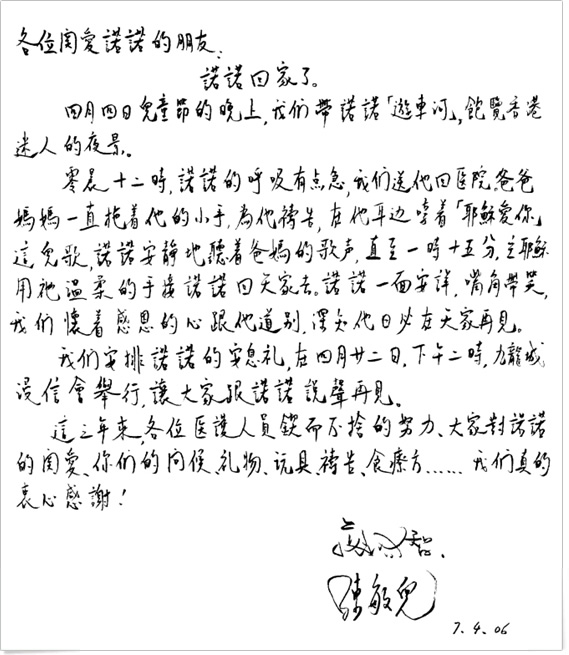 各位関愛諾諾的朋友：
諾諾回家了。
四月四日兒童節的晚上，我们帶諾諾「遊車河」，飽覽香港
迷人的夜景。
零晨十二時，諾諾的呼吸有点急，我们送他回医院。爸爸
媽媽一直拖着他的小手，為他禱告，在他耳边唱着「耶穌愛你」
這兒歌，諾諾安静地聽着爸媽的歌声，直至一時十五分，主耶穌
用祂温柔的手接諾諾回天家去。諾諾一面安詳，嘴角帶笑，
我们懷着感恩的心跟他道别，深知他日必在天家再見。
我们安排諾諾的安息礼，在四月廿二日，下午二時，九龍城
浸信會舉行，讓大家跟諾諾說聲再見。
這三年來，各位医護人員鍥而不捨的努力、大家對諾諾
的関愛、你们的问候、礼物、玩具、禱告、食療方……我们真的
衷心感謝！
陳敏兒
7.4.06